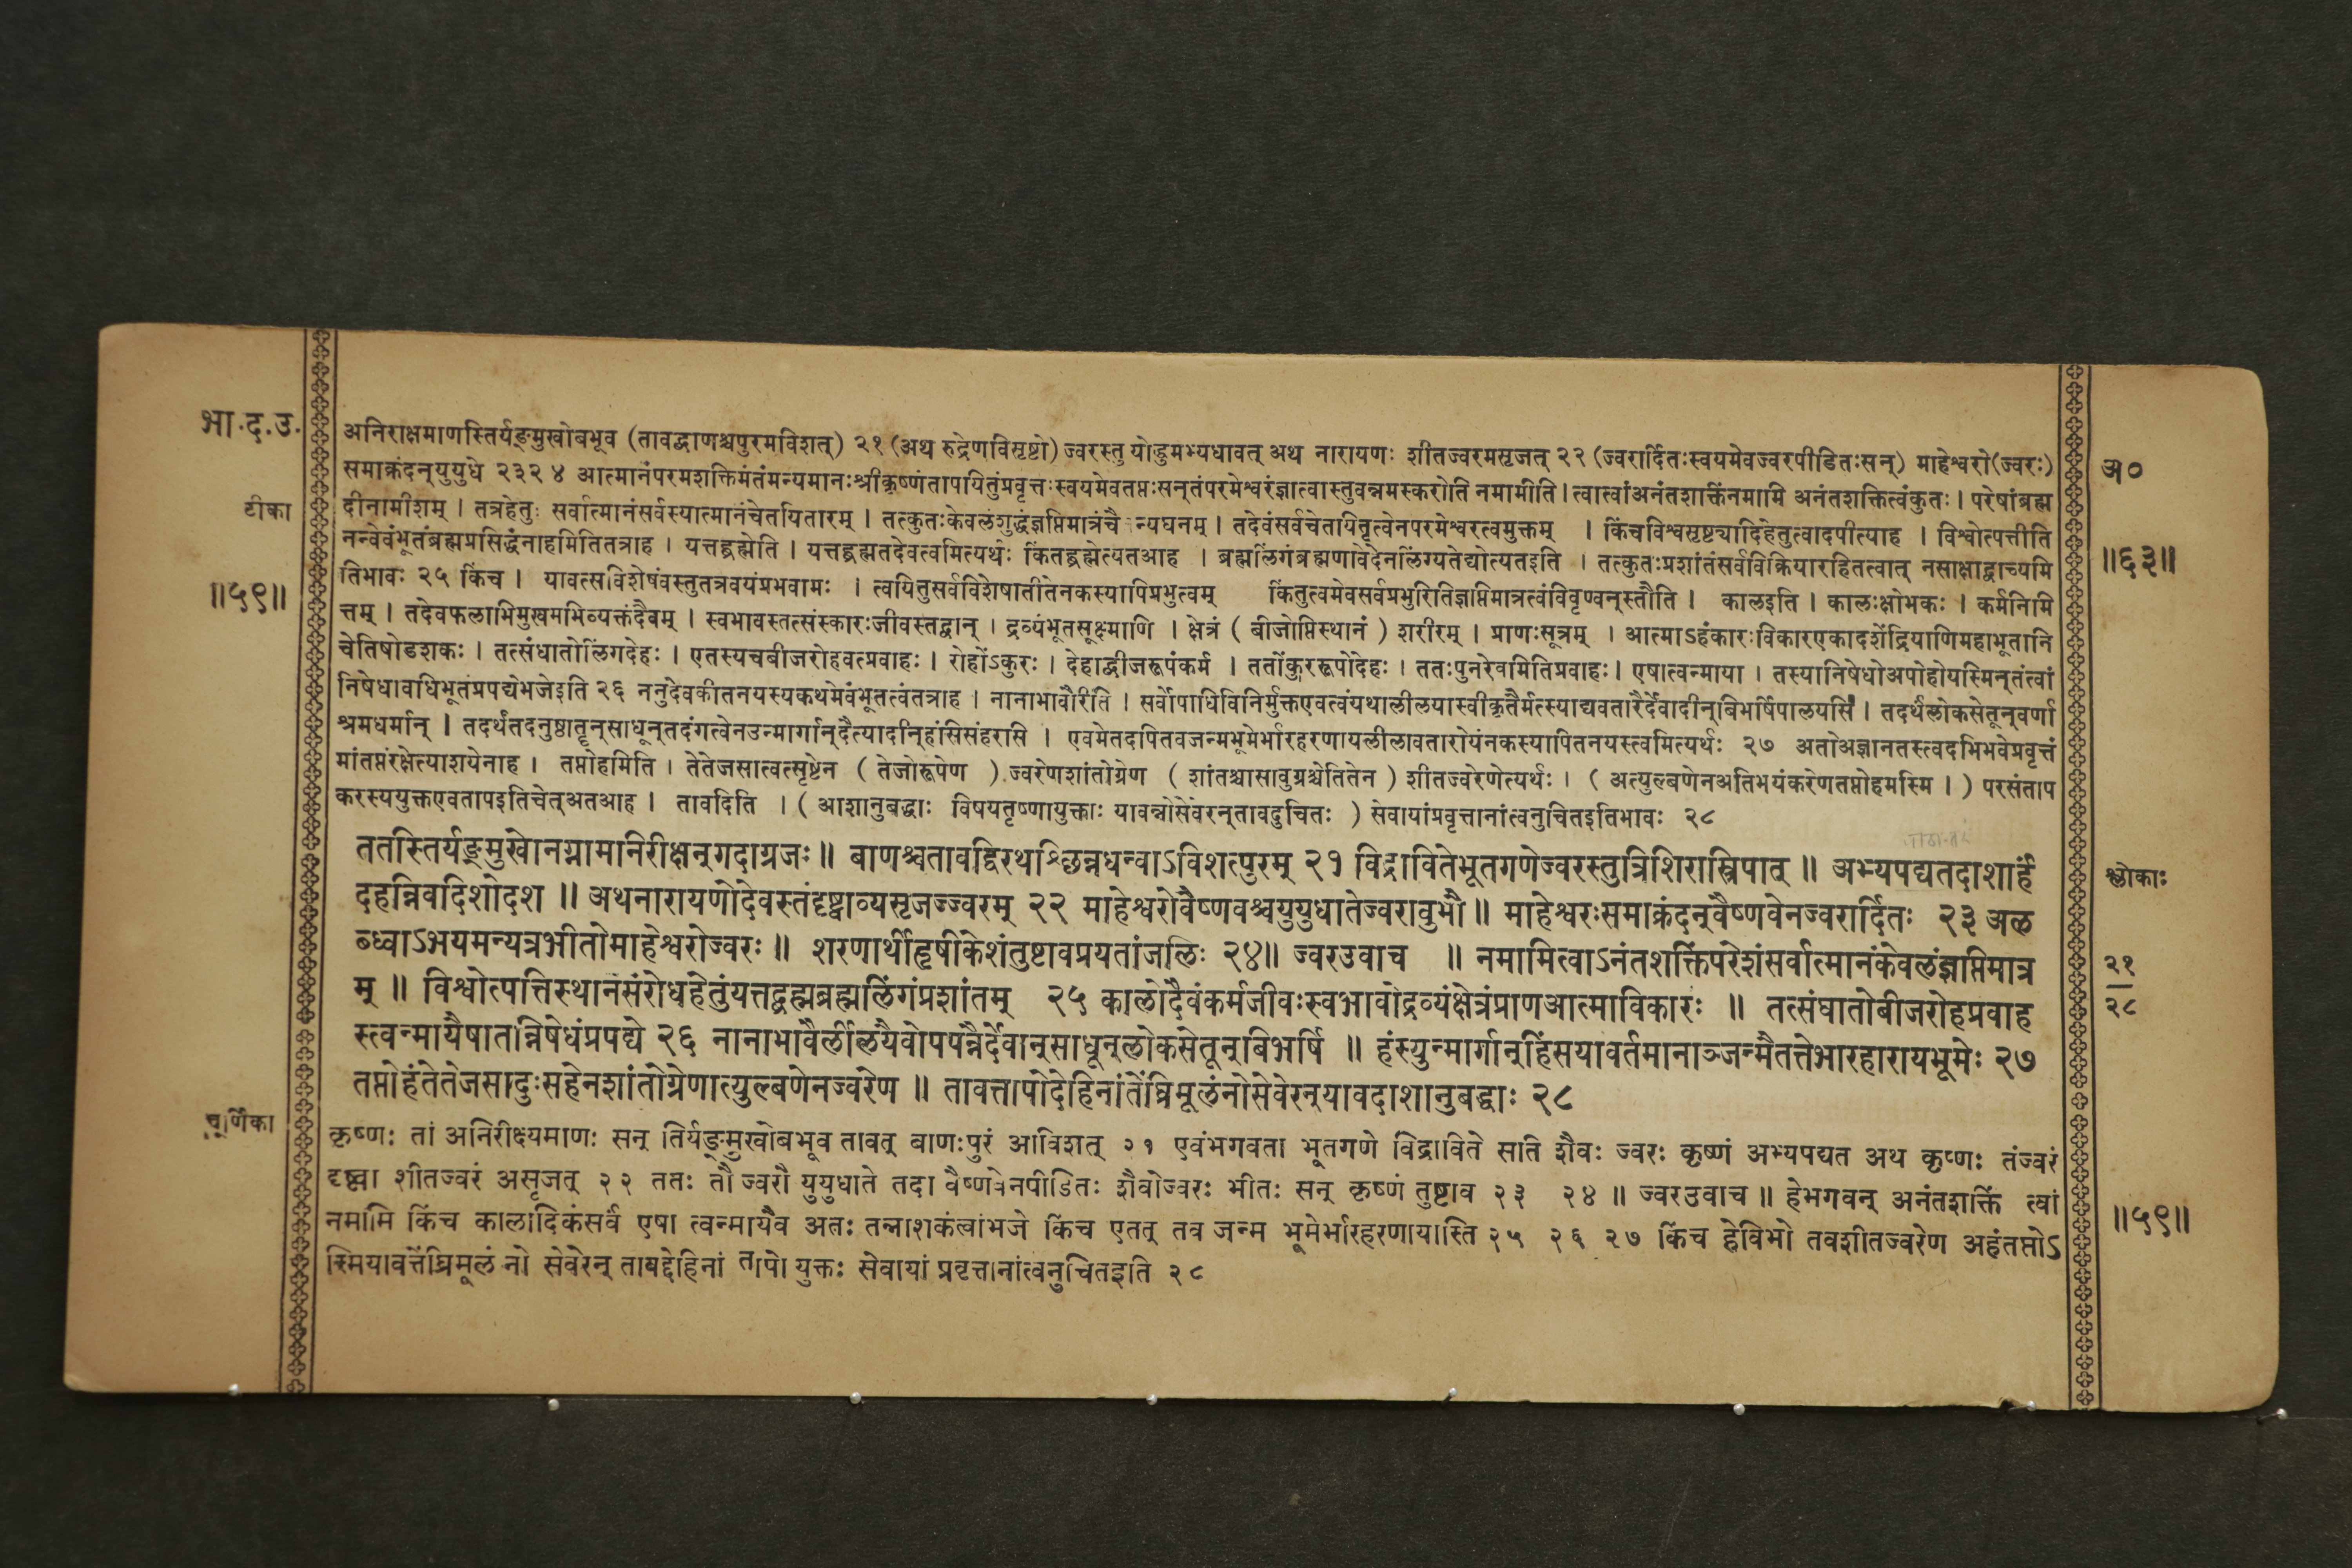 भा.द.उ.
टीका
॥५९॥
अनिराक्षमाणस्तिर्यङ्मुखोबभूव (तावद्बाणश्चपुरमविशत्) २१ (अथ रुद्रेणविसृष्टो) ज्वरस्तु योद्धुमभ्यधावत् अथ नारायणः शीतज्वरमसृजत् २२ (ज्वरार्दितःस्वयमेवज्वरपीडितःसन्) माहेश्वरो(ज्वरः)
समाक्रंदन्युयुधे २३२४ आत्मानंपरमशक्तिमंतंमन्यमानःश्रीकृष्णंतापयितुंप्रवृत्तःस्वयमेवतप्तःसन्तंपरमेश्वरंज्ञात्वास्तुवन्नमस्करोति नमामीति। त्वात्वांअनंतशक्तिंनमामि अनंतशक्तित्वंकुतः। परेषांब्रह्म
दीनामीशम् । तत्रहेतुः सर्वात्मानंसर्वस्यात्मानंचेतयितारम् । तत्कुतःकेवलंशुद्धंज्ञप्तिमात्रंचैन्यघनम् । तदेवंसर्वचेतायितृत्वेनपरमेश्वरत्वमुक्तम् । किंचविश्वसृष्ट्यादिहेतुत्वादपीत्याह । विश्वोत्पत्तीति
नन्वेवंभूतंब्रह्मप्रसिद्धंनाहमितितत्राह । यत्तद्ब्रह्मेति । यत्तद्ब्रह्मतदेवत्वमित्यर्थः किंतद्ब्रह्मेत्यतआह । ब्रह्मलिंगंब्रह्मणावेदेनलिंग्यतेद्योत्यतइति । तत्कुतःप्रशांतंसर्वविक्रियारहितत्वात् नसाक्षाद्वाच्यमि
तिभावः २५ किंच । यावत्सविशेषंवस्तुतत्रवयंप्रभवामः । त्वयितुसर्वविशेषातीतेनकस्यापिप्रभुत्वम् किंतुत्वमेवसर्वप्रभुरितिज्ञप्तिमात्रत्वंविवृण्वन्स्तौति । कालइति । कालःक्षोभकः । कर्मनिमि
त्तम् । तदेवफलाभिमुखमभिव्यक्तंदैवम् । स्वभावस्तत्संस्कारःजीवस्तद्वान् । द्रव्यंभूतसूक्ष्माणि । क्षेत्रं ( बीजोप्तिस्थानं ) शरीरम् । प्राणःसूत्रम् । आत्माऽहंकारःविकारएकादशेंद्रियाणिमहाभूतानि
चेतिषोडशकः । तत्संधातोलिंगदेहः । एतस्यचबीजरोहवत्प्रवाहः । रोहोंऽकुरः । देहाद्बीजरूपंकर्म । ततोंकुररूपोदेहः । ततःपुनरेवमितिप्रवाहः । एषात्वन्माया । तस्यानिषेधोअपोहोयस्मिन्तंत्वां
निषेधावधिभूतंप्रपद्येभजेइति २६ ननुदेवकीतनयस्यकथमेवंभूतत्वंतत्राह । नानाभावौरिति । सर्वोपाधिविनिर्मुक्तएवत्वंयथालीलयास्वीकृतैर्मत्स्याद्यवतारैर्देवादीन्बिभर्षिपालयसि । तदर्थंलोकसेतून्वर्णा
श्रमधर्मान् । तदर्थंतदनुष्ठातॄन्साधून्तदंगत्वेनउन्मार्गान्दैत्यादीन्हंसिसंहरासि । एवमेतदपितवजन्मभूमेर्भारहरणायलीलावतारोयंनकस्यापितनयस्त्वमित्यर्थः २७ अतोअज्ञानतस्त्वदभिभवेप्रवृत्तं
मांतप्तंरक्षेत्याशयेनाह । तप्तोहमिति । तेतेजसात्वत्सृष्टेन ( तेजोरूपेण ) ज्वरेणशांतोग्रेण ( शांतश्चासावुग्रश्चेतितेन ) शीतज्वरेणेत्यर्थः । ( अत्युल्बणेनअतिभयंकरेणतप्तोहमस्मि । ) परसंताप
करस्ययुक्तएवतापइतिचेत्अतआह । तावदिति । ( आशानुबद्धाः विषयतृष्णायुक्ताः यावन्नोसेवेरन्तावदुचितः ) सेवायांप्रवृत्तानांत्वनुचितइतिभावः २८
ततस्तिर्यङ्मुखोनग्नामानिरीक्षन्गदाग्रजः॥ बाणश्चतावद्विरथश्छिन्नधन्वाऽविशत्पुरम् २१ विद्रावितेभूतगणेज्वरस्तुत्रिशिरास्त्रिपात् ॥ अभ्यपद्यतदाशार्हं
दहन्निवदिशोदश ॥ अथनारायणोदेवस्तंदृष्ट्वाव्यसृजज्ज्वरम् २२ माहेश्वरोवैष्णवश्चयुयुधातेज्वरावुभौ॥ माहेश्वरःसमाक्रंदन्वैष्णवेनज्वरार्दितः २३ अल
ब्ध्वाऽभयमन्यत्रभीतोमाहेश्वरोज्वरः॥ शरणार्थीहृषीकेशंतुष्टावप्रयतांजलिः २४॥ ज्वरउवाच ॥ नमामित्वाऽनंतशक्तिंपरेशंसर्वात्मानंकेवलंज्ञप्तिमात्र
म् ॥ विश्वोत्पत्तिस्थानसंरोधहेतुंयत्तद्ब्रह्मब्रह्मलिंगंप्रशांतम् २५ कालोदैवंकर्मजीवःस्वभावोद्रव्यंक्षेत्रंप्राणआत्माविकारः ॥ तत्संघातोबीजरोहप्रवाह
स्त्वन्मायैषातन्निषेधंप्रपद्ये २६ नानाभावैर्लीलयैवोपपन्नैर्देवान्साधून्लोकसेतून्बिभर्षि ॥ हंस्युन्मार्गान्हिंसयावर्तमानाञ्जन्मैतत्तेभारहारायभूमेः २७
तप्तोहंतेतेजसादुःसहेनशांतोग्रेणात्युल्बणेनज्वरेण ॥ तावत्तापोदेहिनांतेंघ्रिमूलंनोसेवेरन्यावदाशानुबद्धाः २८
चूर्णिका
कृष्णः तां अनिरीक्ष्यमाणः सन् तिर्यङ्मुखोबभूव तावत् बाणःपुरं आविशत् २१ एवंभगवता भूतगणे विद्राविते साति शैवः ज्वरः कृष्णं अभ्यपद्यत अथ कृष्णः तंज्वरं
दृष्ट्वा शीतज्वरं असृजत् २२ ततः तौ ज्वरौ युयुधाते तदा वैष्णवेनपीडितः शैवोज्वरः भीतः सन् कृष्णं तुष्टाव २३ २४ ॥ ज्वरउवाच ॥ हेभगवन् अनंतशक्तिं त्वां
नमामि किंच कालादिकंसर्वं एषा त्वन्मायैव अतः तन्नाशकंत्वांभजे किंच एतत् तव जन्म भूमेर्भारहरणायास्ति २५ २६ २७ किंच हेविभो तवशीतज्वरेण अहंतप्तोऽ
स्मियावत्तेंघ्रिमूलं नो सेवेरन् तावद्देहिनां तापो युक्तः सेवायां प्रवृत्तानांत्वनुचितइति २८
अ०
॥६३॥
श्लोकाः
२१
२८
॥५९॥